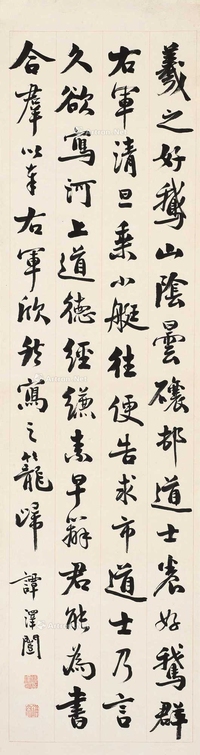 羲之好鵝山陰曇𥖝村道士養好鵝群
右軍清旦乘小艇往便告求市道士乃言
久欲寫河上道德經縑素早辦君能為書
合群以奉右軍欣然寫之籠歸
譚澤闓